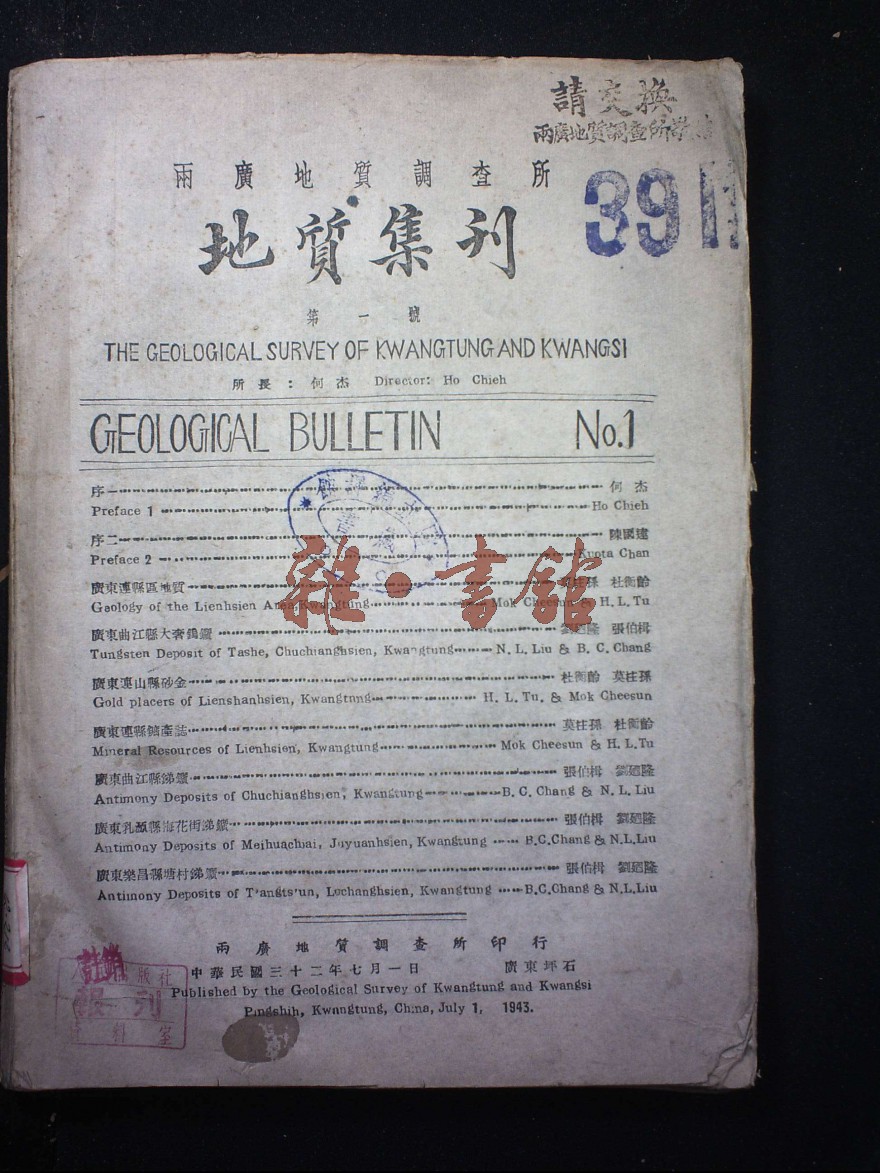 請交換
兩廣地質調查所
兩廣地質調查所
39
地質集刊
第一號
THE GEOLOGICAL SURVEY OF KWANGTUNG AND KWANGSI
所長:何杰 Director: Ho Chieh
GEOLOGICAL BULLETIN No.1
序一 何杰
Preface 1 Ho Chieh
序二 陳國達
Preface 2 Kuota Chan
廣東連縣區地質 莫柱孫 杜衡齡
Geology of the Lienhsien Area, Kwangtung Mok Cheesun & H. L. Tu
廣東曲江縣大奢鎢鑛 劉迺隆 張伯楫
Tungsten Deposit of Tashe, Chuchianghsien, Kwangtung N. L. Liu & B. C. Chang
廣東連山縣砂金 杜衡齡 莫柱孫
Gold placers of Lienshanhsien, Kwangtnng H. L. Tu. & Mok Cheesun
廣東連縣鑛產誌 莫柱孫 杜衡齡
Mineral Resources of Lienhsien, Kwangtung Mok Cheesun & H. L. Tu
廣東曲江縣銻鑛 張伯楫 劉迺隆
Antimony Deposits of Chuchianghsien, Kwangtung B. C. Chang & N. L. Liu
廣東乳源縣梅花街銻鑛 張伯楫 劉迺隆
Antimony Deposits of Meihuachai, Juyuanhsien, Kwangtung B.C.Chang & N.L.Liu
廣東樂昌縣塘村銻鑛 張伯楫 劉迺隆
Antimony Deposits of T'angts'un, Lochanghsien, Kwangtung B.C.Chang & N.L.Liu
雜·書館
兩廣地質調查所印行
中華民國三十二年七月一日 廣東坪石
Published by the Geological Survey of Kwangtung and Kwangsi
Pingshih, Kwangtung, China, July 1, 1943.
版社